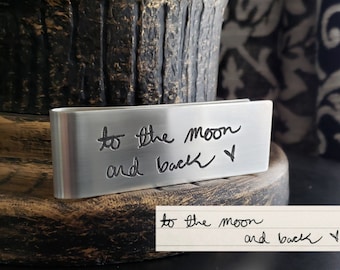 to the moon
and back ♥
to the moon
and back ♥